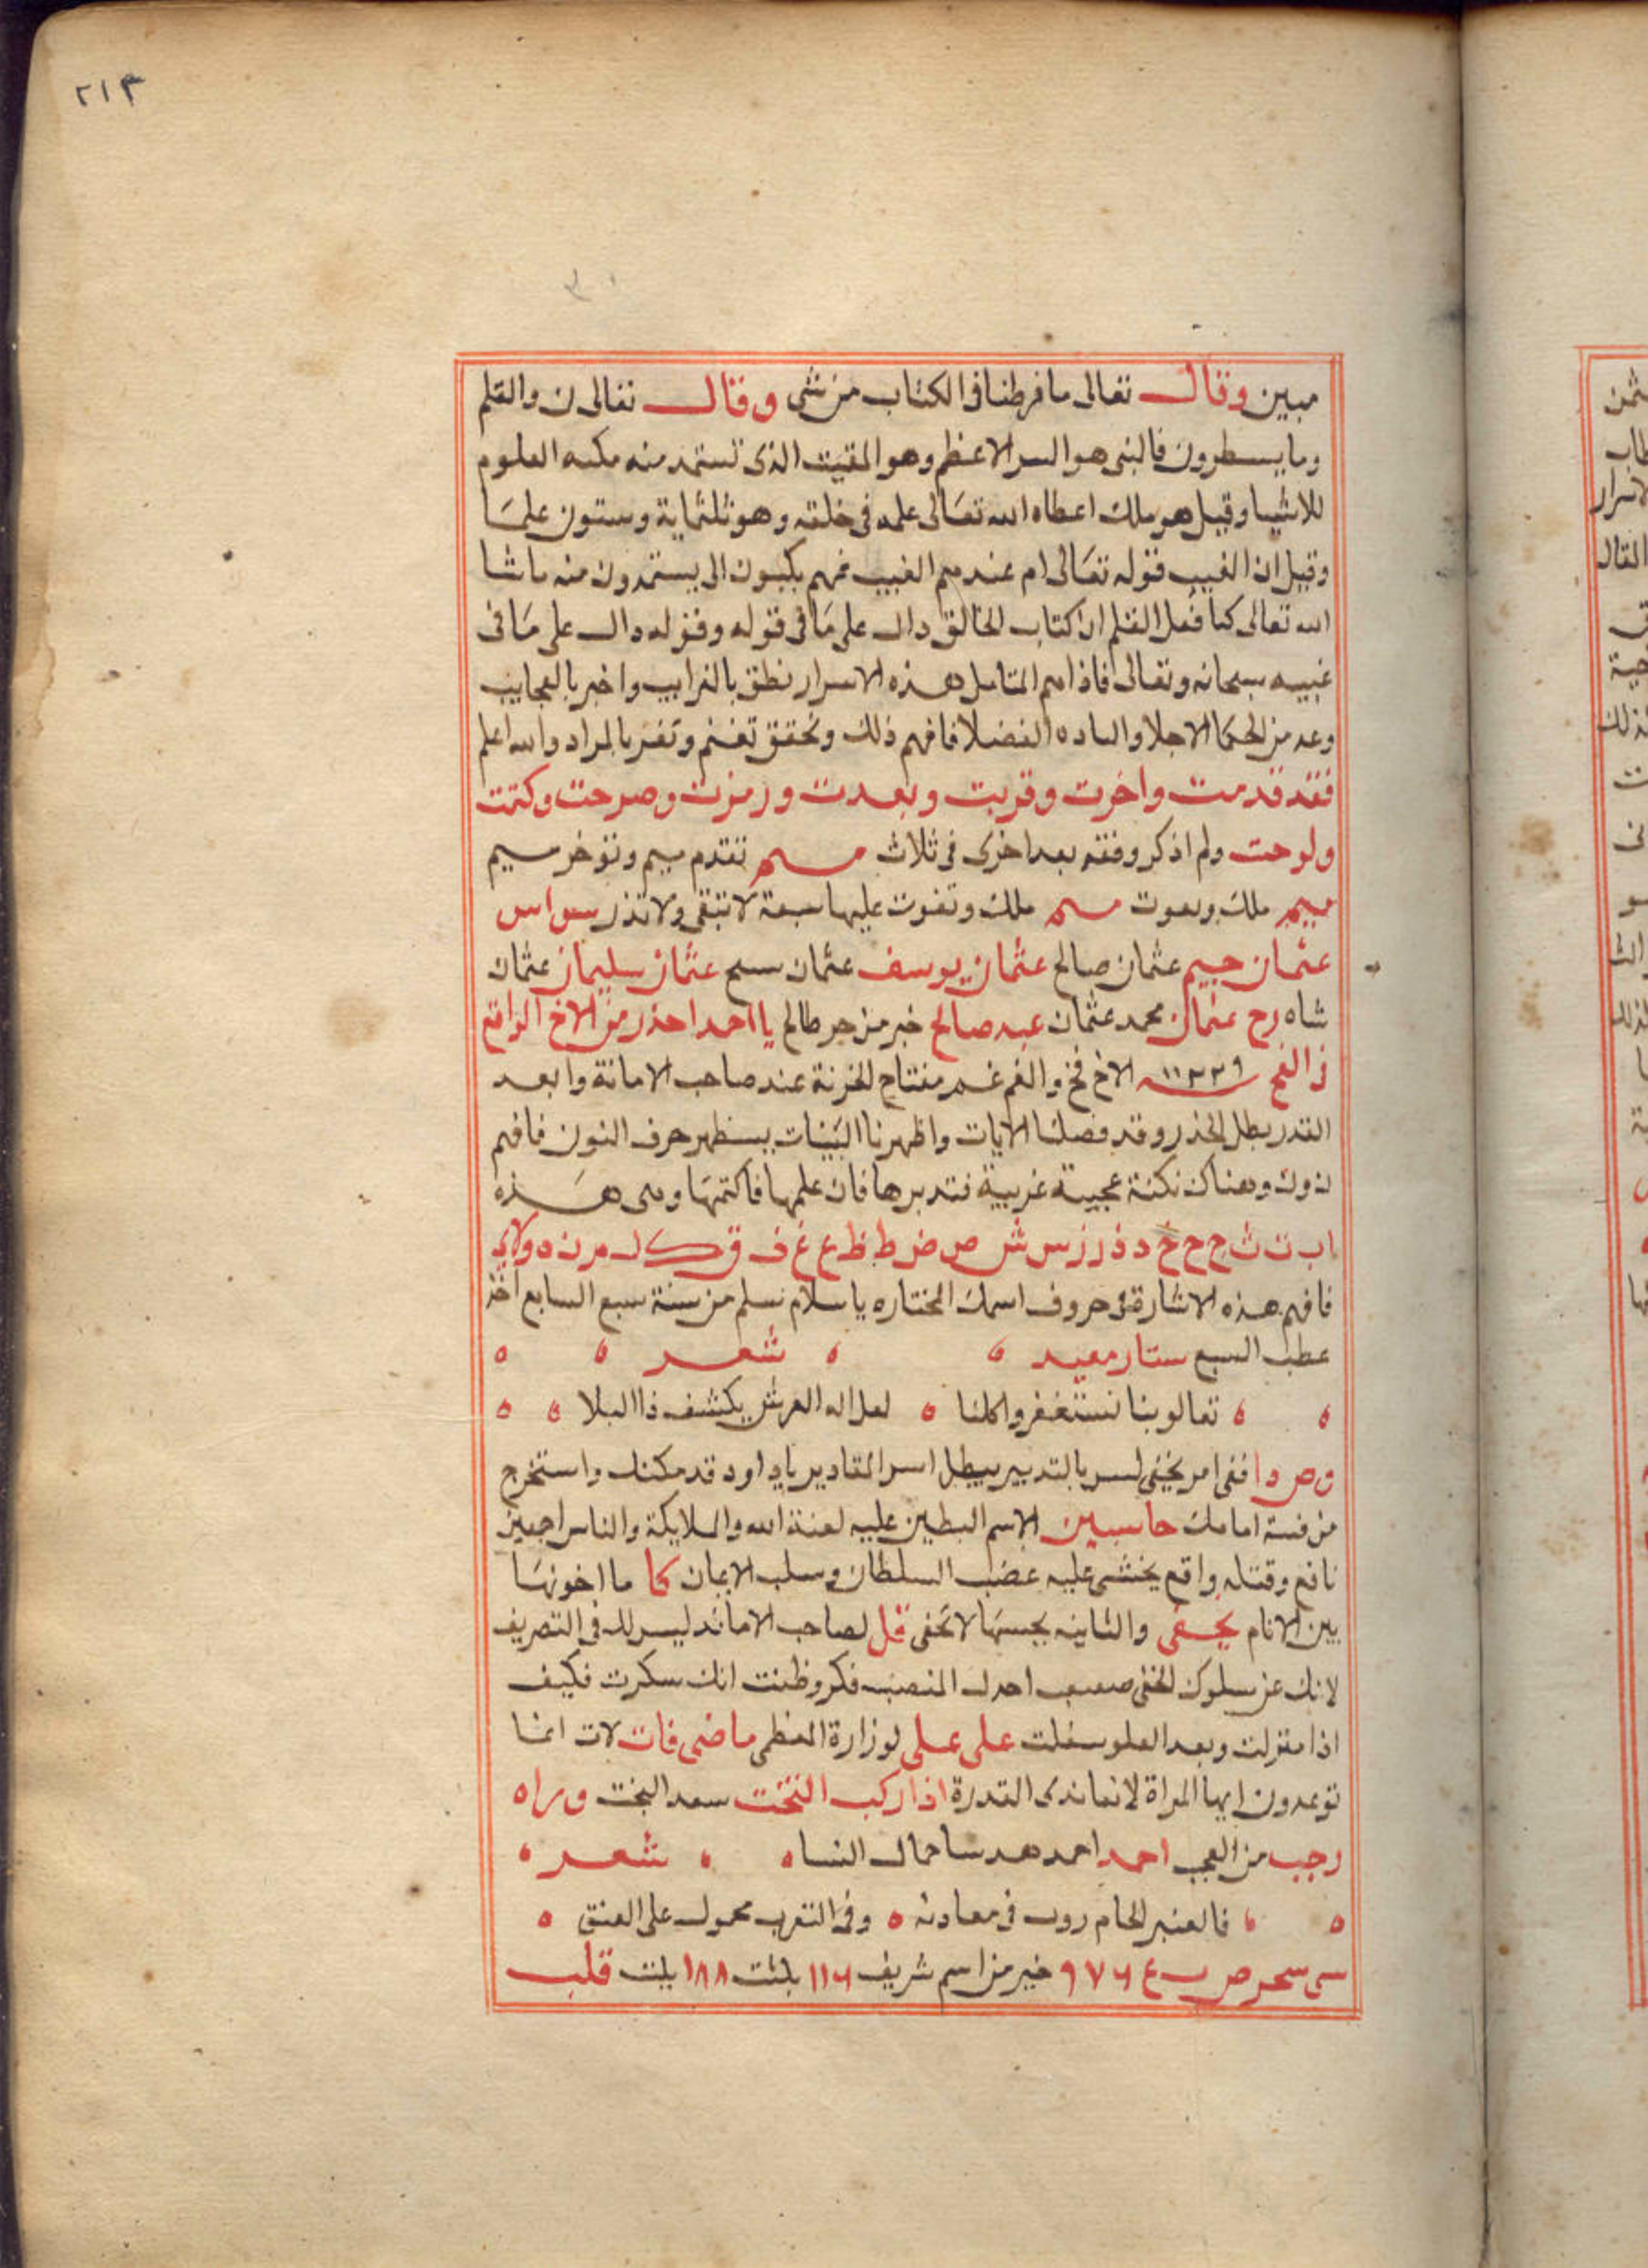 ٢١٣
مبين وقال تعالى ما فرطنا فى الكتاب من شى وقال تعالى ن والقلم
وما يسطرون فالنبى هو السر الاعظم وهو المقيت الذى تستمد منه مكنه العلوم
للاشيا وقيل هو ملك اعطاه الله تعالى علمه فى خلقه وهو ثلثماية وستون علما
وقيل ان الغيب قوله تعالى ام عندهم الغيب فهم يكتبون اى يستمدون منه ما شا
الله تعالى كما فعل القلم ان كتاب الخالق دال على ما فى قوله وقوله دال على ما فى
غيبه سبحانه وتعالى فاذا فهم المتامل هذه الاسرار نطق بالغرايب واخبر بالعجايب
وعد من الحكما الاجلا والساده الفضلا فافهم ذلك وتحقق تغنم وتفز بالمراد والله اعلم
فقد قدمت واخرت وقربت وبعدت ورمزت وصرحت وكتمت
ولوحت ولم اذكر وفقه بعد اخرى فى ثلاث تقدم ميم وتوخر ميم
ميم ملك ويموت ملك وتفوت عليها سبعة لا تبقى ولا تذر سواس
عثمان جيم عثمان صالح عثمان يوسف عثمان عثمان سليمان عثمان
شاه رح عثمان محمد عثمان عبد صالح خبر من طالح يا احمد احذر من الاخ الواقع
فى الفخ ١١٣٣٩ الاخ فخ والغم مفتاح الخزنة عند صاحب الامانة وابعد
القدر بطل الحذر وقد فصلنا الايات واظهرنا البينات بسظهر حرف النون فافهم
ن ون وهناك نكتة عجيبة غريبة فتدبرها فان علمها فاكتمها وهى هذه
ا ب ت ث ج ح خ د ذ ر ز س ش ص ض ط ظ ع غ ف ق ك ل م ن ه و لا ى
فافهم هذه الاشارة حروف اسمك المختاره يا سلام نسلم من سنة سبع السابع اخذ
عطب السبع ستار معيد شعر
تعالو بنا نستغفروا كلنا لعل اله العرش يكشف ذا البلا
وص وا ففى امر يخفى ليس بالتدبير يبطل اسر المقادير يا داود قد مكنك واستخرج
من امامك حاسبين الاسم البطين عليه لعنة الله والملايكة والناس اجمعين
نافع وقتله واقع يخشى عليه غضب السلطان وسلب الايمان كما ما اخونها
بين الانام يخفى والثانيه بحبسها لا تخفى قل لصاحب الامانه ليس لك فى التصريف
لانك عن سلوك الخفى احدك المنصب فكر وظنت انك سكرت فكيف
اذا منزلت وبعد العلو سفلت على على لوزارة العظمى ما ضى فات لات انما
توعدون ايها المراة لانها ندى القدرة اذا ركب التخت سعد البخت وراه
رجب من العجب احمد احمد هد سا حال النساه شعر
فالعنبر الخام روث فى معادنه وفى التغرب محمول على العنق
سى سحر ص ب ع ٩٧٦ خير من اسم شريف ١١٦ بلثت ١٨٨ بلثت قلب